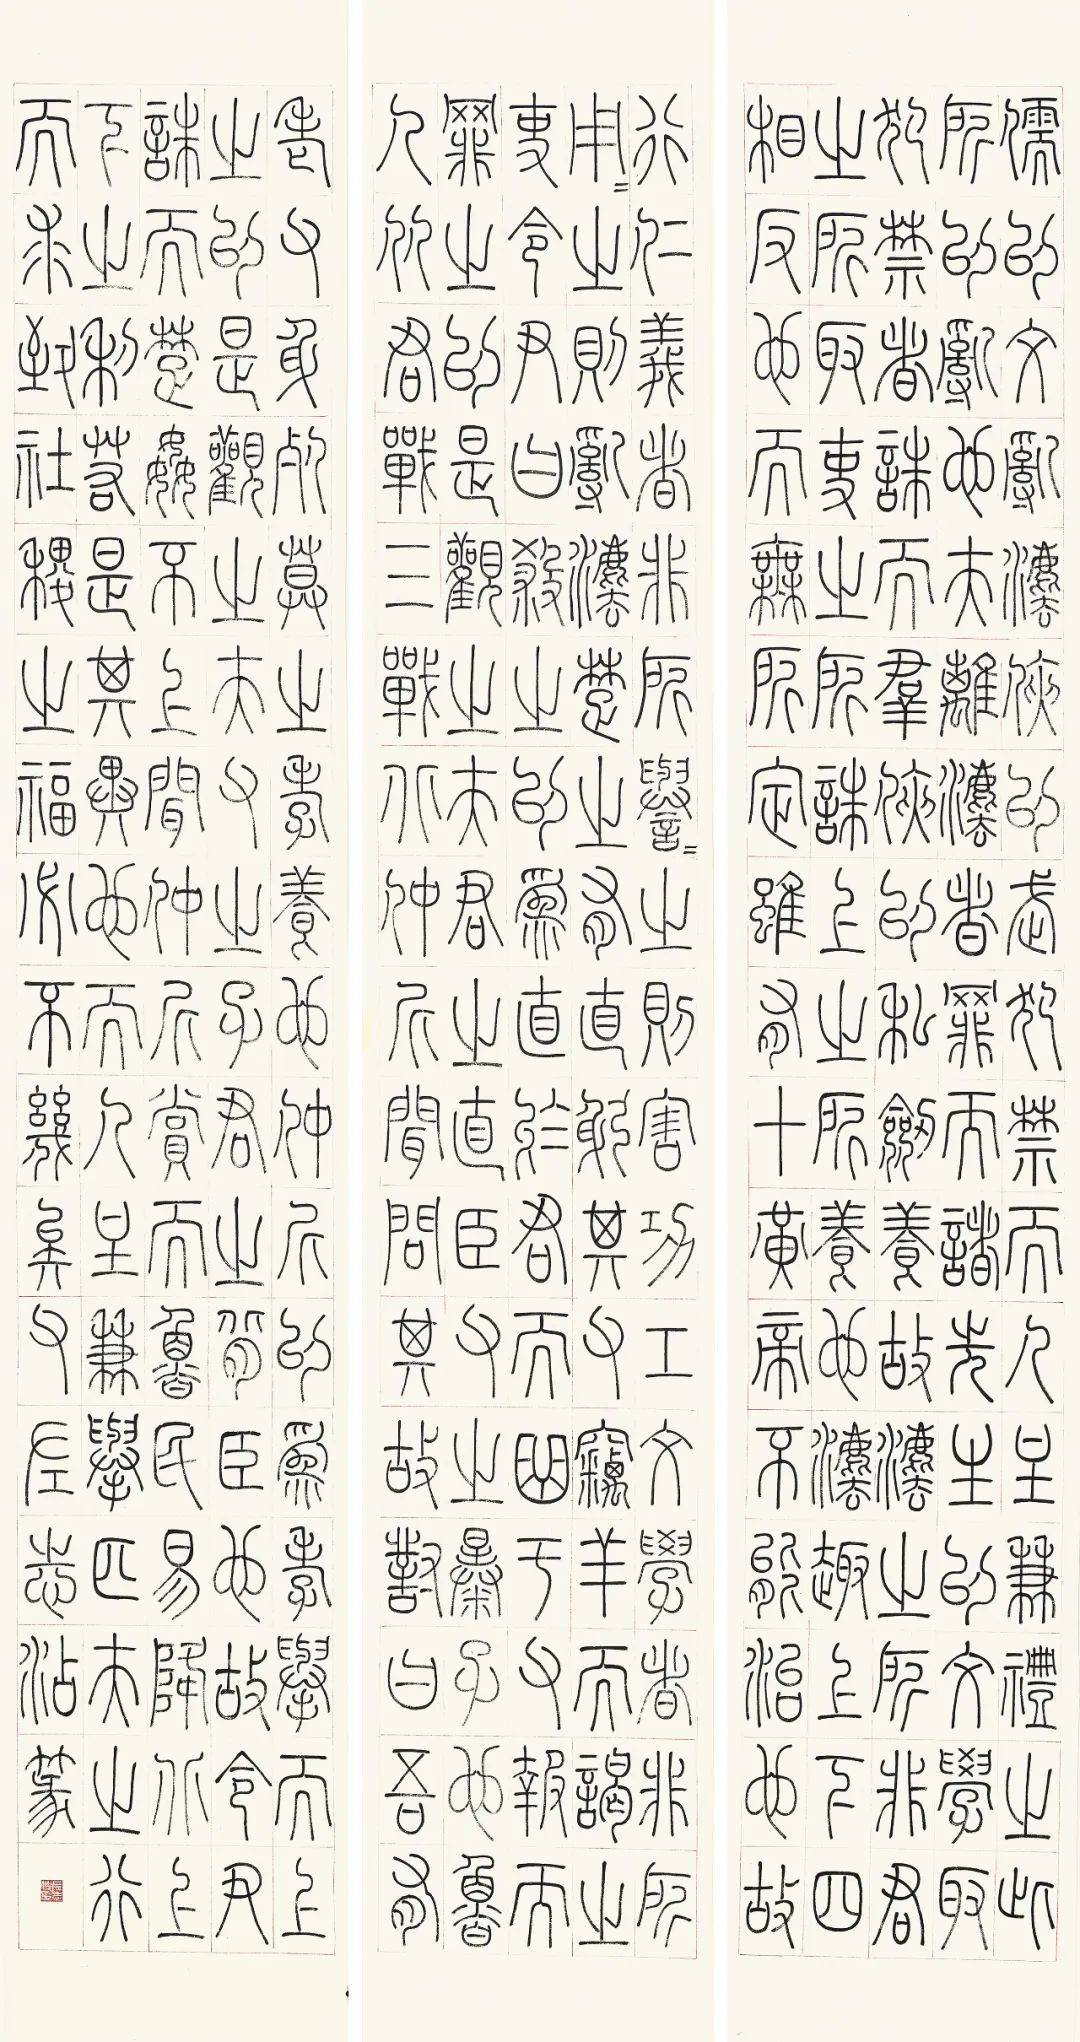 儒以文亂法俠以武犯禁而人主兼禮之此
所以亂也夫離法者罪而諸先生以文學取
犯禁者誅而羣俠以私劍養故法之所非君
之所取吏之所誅上之所養也法趣上下四
相反也而無所定雖有十黃帝不能治也故
行仁義者非所譽=之則害功工文學者非所
用=之則亂法楚之有直躬其父竊羊而謁之
吏令尹曰殺之以為直於君而曲于父報而
罪之以是觀之夫君之直臣父之暴子也魯
人從君戰三戰北仲尼聞問其故對曰吾有
老父身死莫之孝養也仲尼以為孝舉而上
之以是觀之夫父之子君之背臣也故令尹
誅而楚姦不上聞仲尼賞而魯民易降北上
下之利若是其異也而人主兼舉匹夫之行
而求致社稷之福必不幾矣左志沾篆